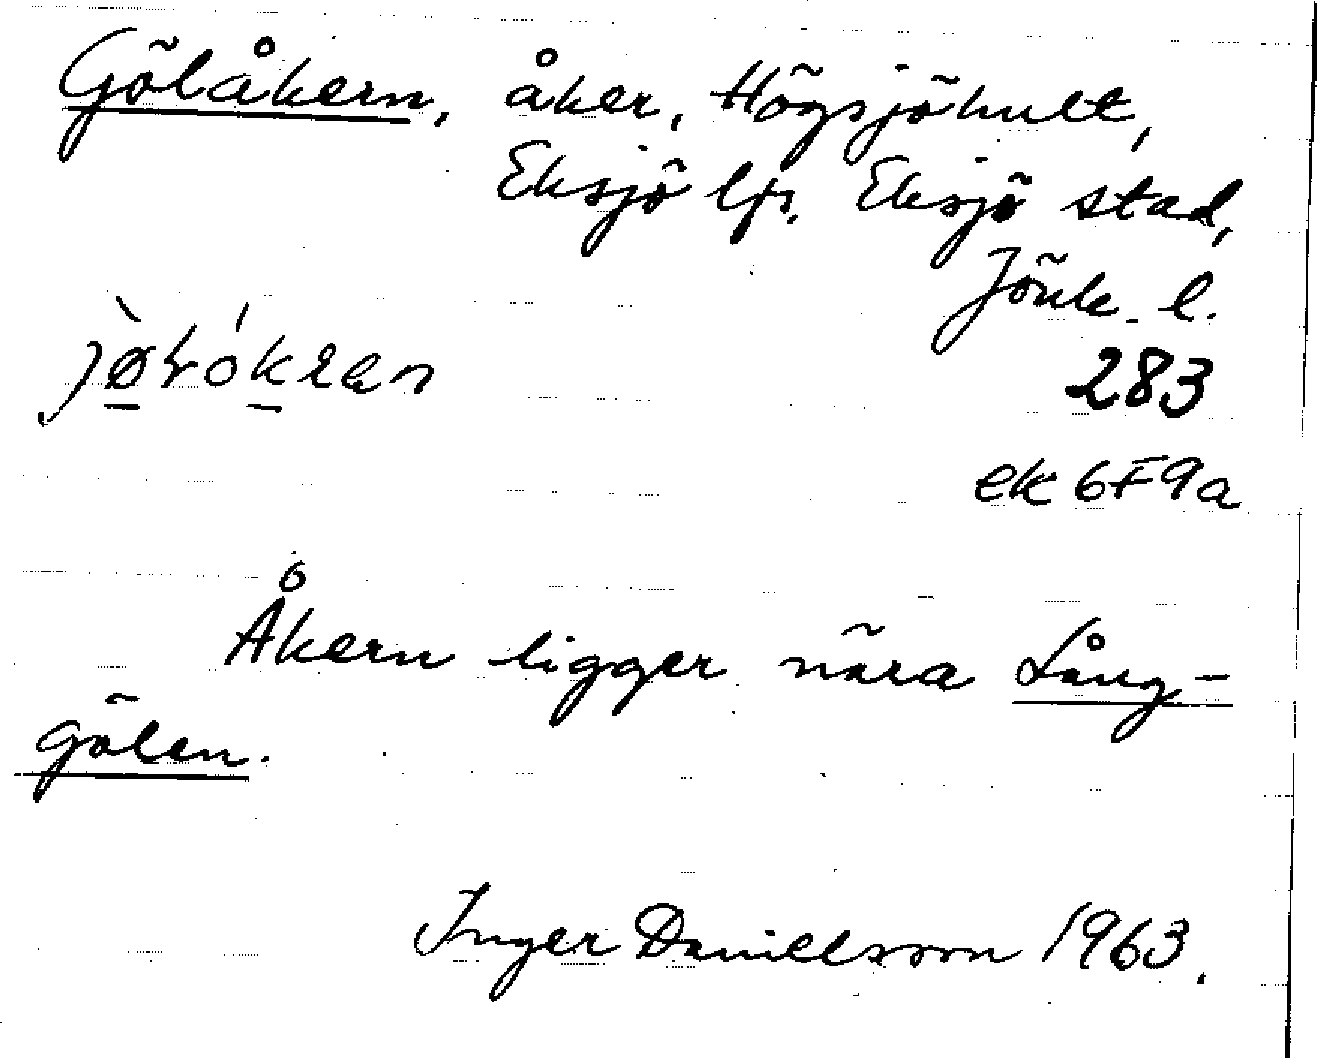 Gölåkern, åker, Högsjöhult,
Eksjö lfs. Eksjö stad,
Jönk. l.
283
ek 6F9a
Åkern ligger nära Lång-
gölen.
Inger Daniellsson 1963.